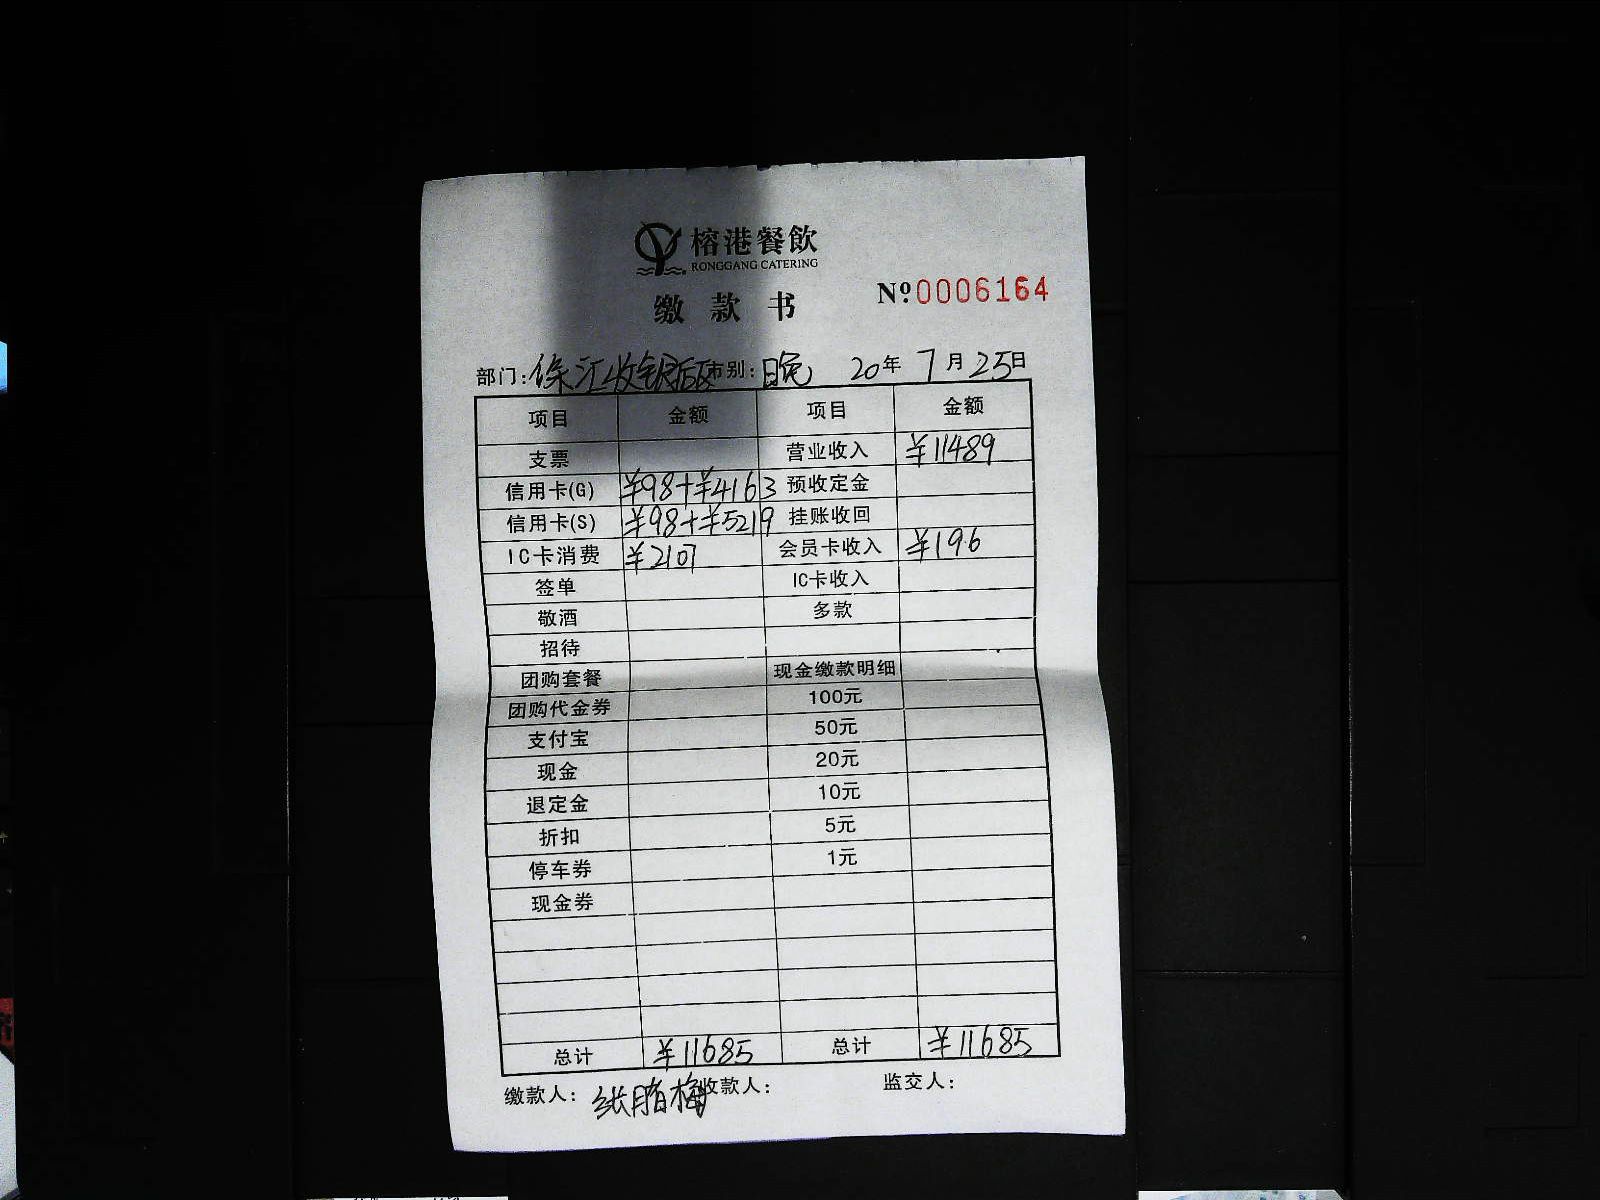 榕港餐飲
RONGGANG CATERING
缴款书
№0006164
部门：徐汇收银 市别：晚 20年7月25日
项目 金额 项目 金额
支票 营业收入 ¥11489
信用卡(G) ¥98+¥4163 预收定金
信用卡(S) ¥98+¥5219 挂账收回
IC卡消费 ¥2107 会员卡收入 ¥196
签单 IC卡收入
敬酒 多款
招待
团购套餐 现金缴款明细
团购代金券 100元
支付宝 50元
现金 20元
退定金 10元
折扣 5元
停车券 1元
现金券
总计 ¥11685 总计 ¥11685
缴款人： 收款人： 监交人：